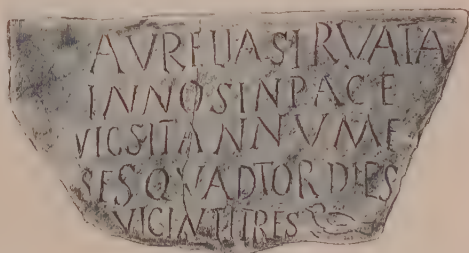 AVRELIA SIRVATA
INNOS IN PACE
VICSIT ANNVM E
SES QVADTOR DIES
VICINTITRES